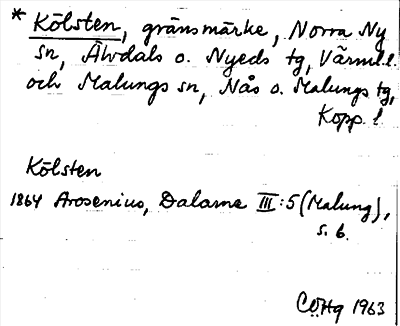 * Kölsten, gränsmärke, Norra Ny
sn, Älvdals o. Nyeds tg, Värml. l.
och Malungs sn, Nås o. Malungs tg,
Kopp. l
Kölsten
1864 Arosenius, Dalarne III:5 (Malung),
s. 6.
CÖHg 1963